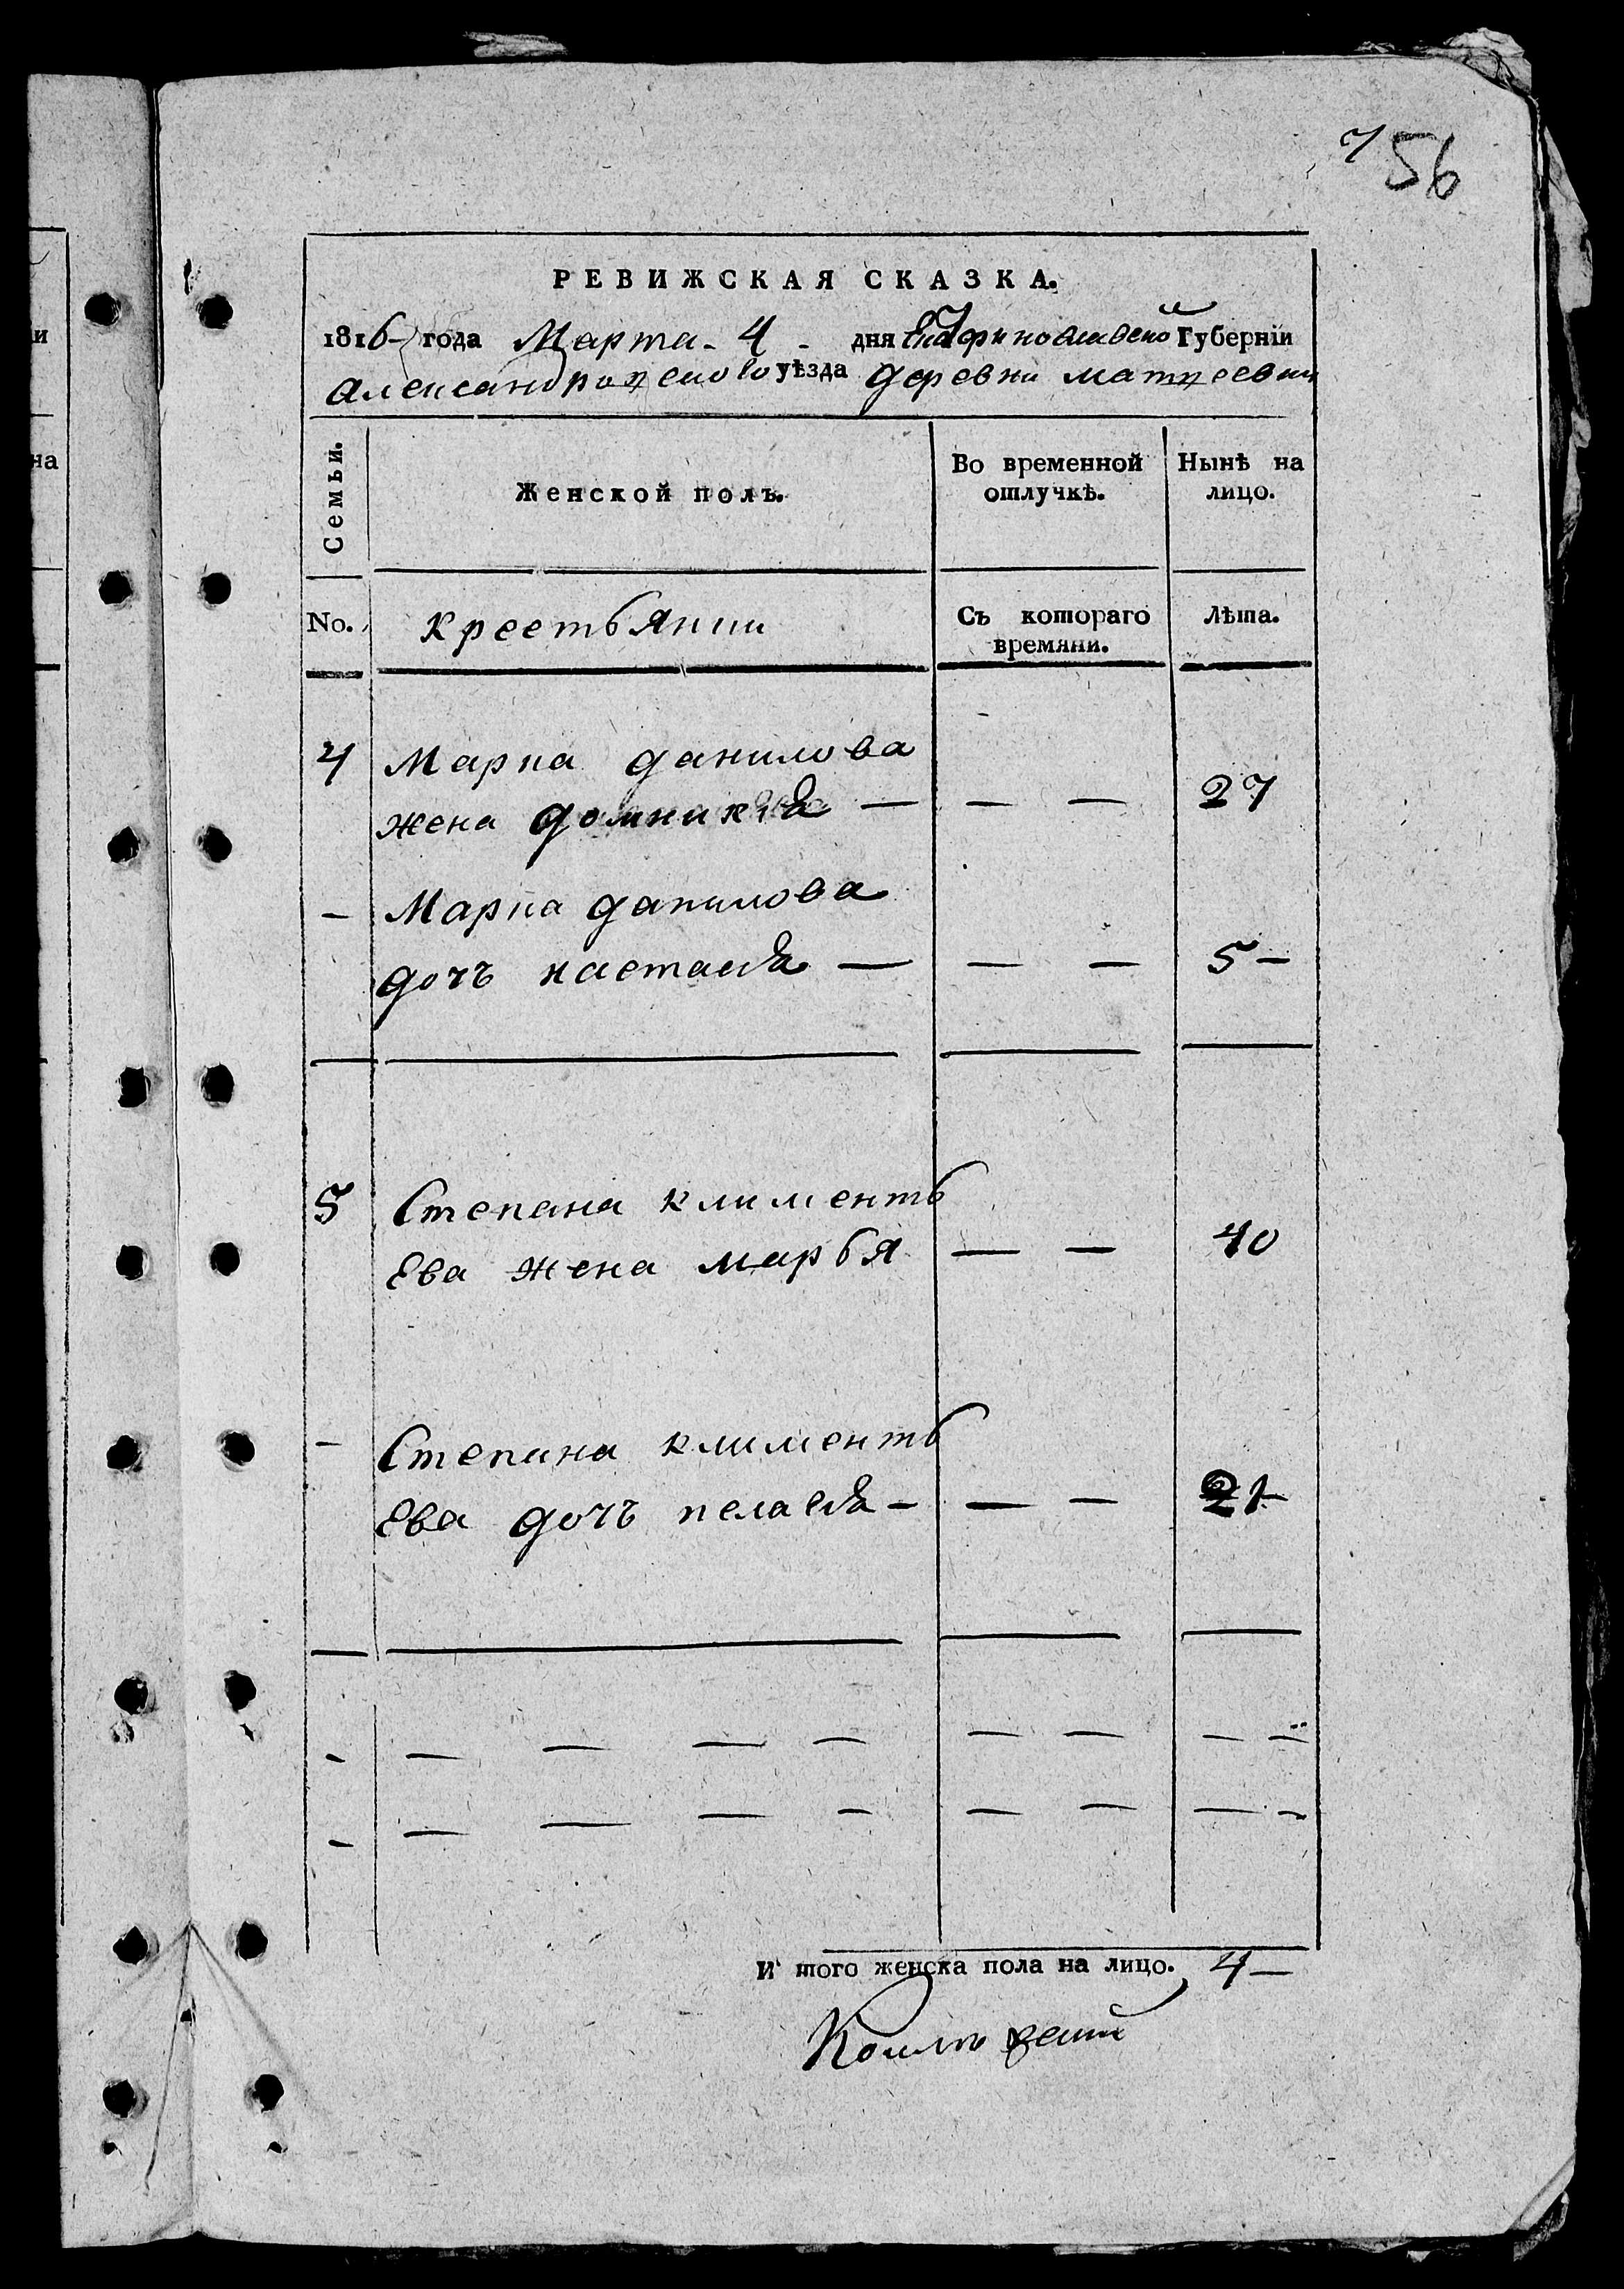 7
56
РЕВИЖСКАЯ СКАЗКА.
1816 года Марта 4 дня Екатериновславской Губерніи
Александровского уѣзда деревни матвеевки
Семьи.
Женской полъ.
Во временной отлучкѣ.
Нынѣ на лицо.
No.
крестьянки
Съ котораго времяни.
Лѣта.
4 Марка данилова
жена домникия — — — 27
— Марка данилова
дочъ настасия — — — 5 —
5 Степана клименть
Ева жена марья — — 40
— Степана клименть
Ева дочъ пелагия — — — 21 —
И того женска пола на лицо. 4 —